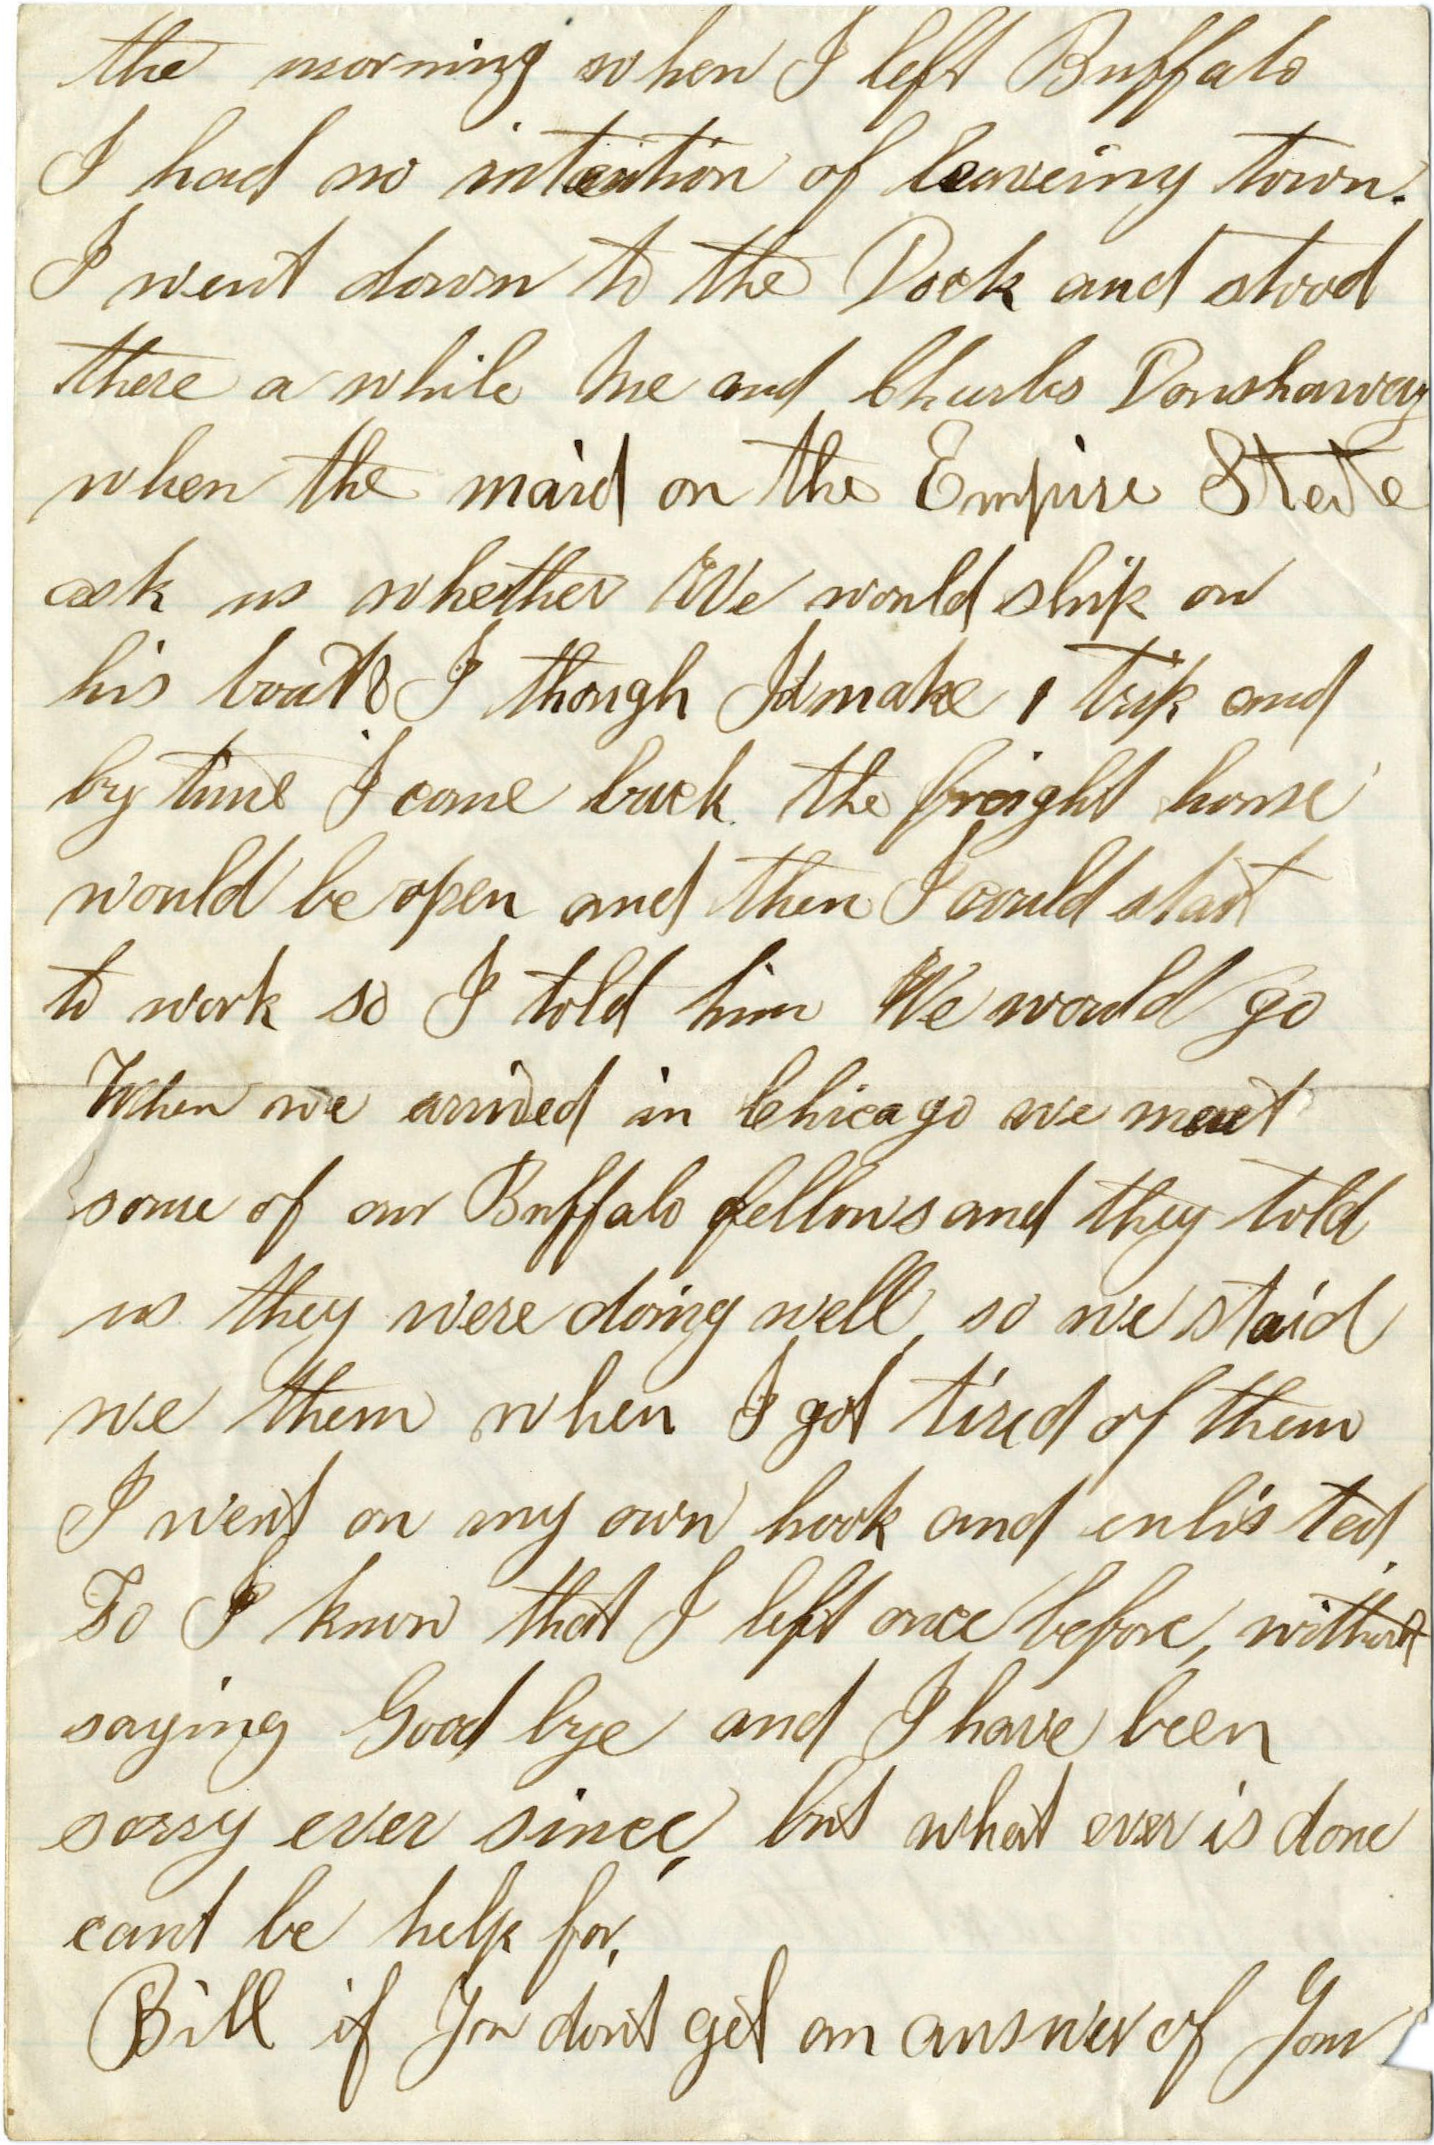 the morning when I left Buffalo
I had no intention of leaveing town.
I went down to the Dock and stood
there a while Me and Chubs Donshaway
when the maid on the Empire State
ask us whether We would ship on
his boat I though I'd make 1 trip and
by time I come back the freight house
would be open and then I could start
to work so I told him We would go
When we arrived in Chicago we meet
some of our Buffalo fellows and they told
us they were doing well, so we staid
we them when I got tired of them
I went on my own hook and enlisted.
To I know that I left once before, without
saying Good bye and I have been
sorry ever since, but what ever is done
cant be help for,
Bill if You don't get an answer of Your